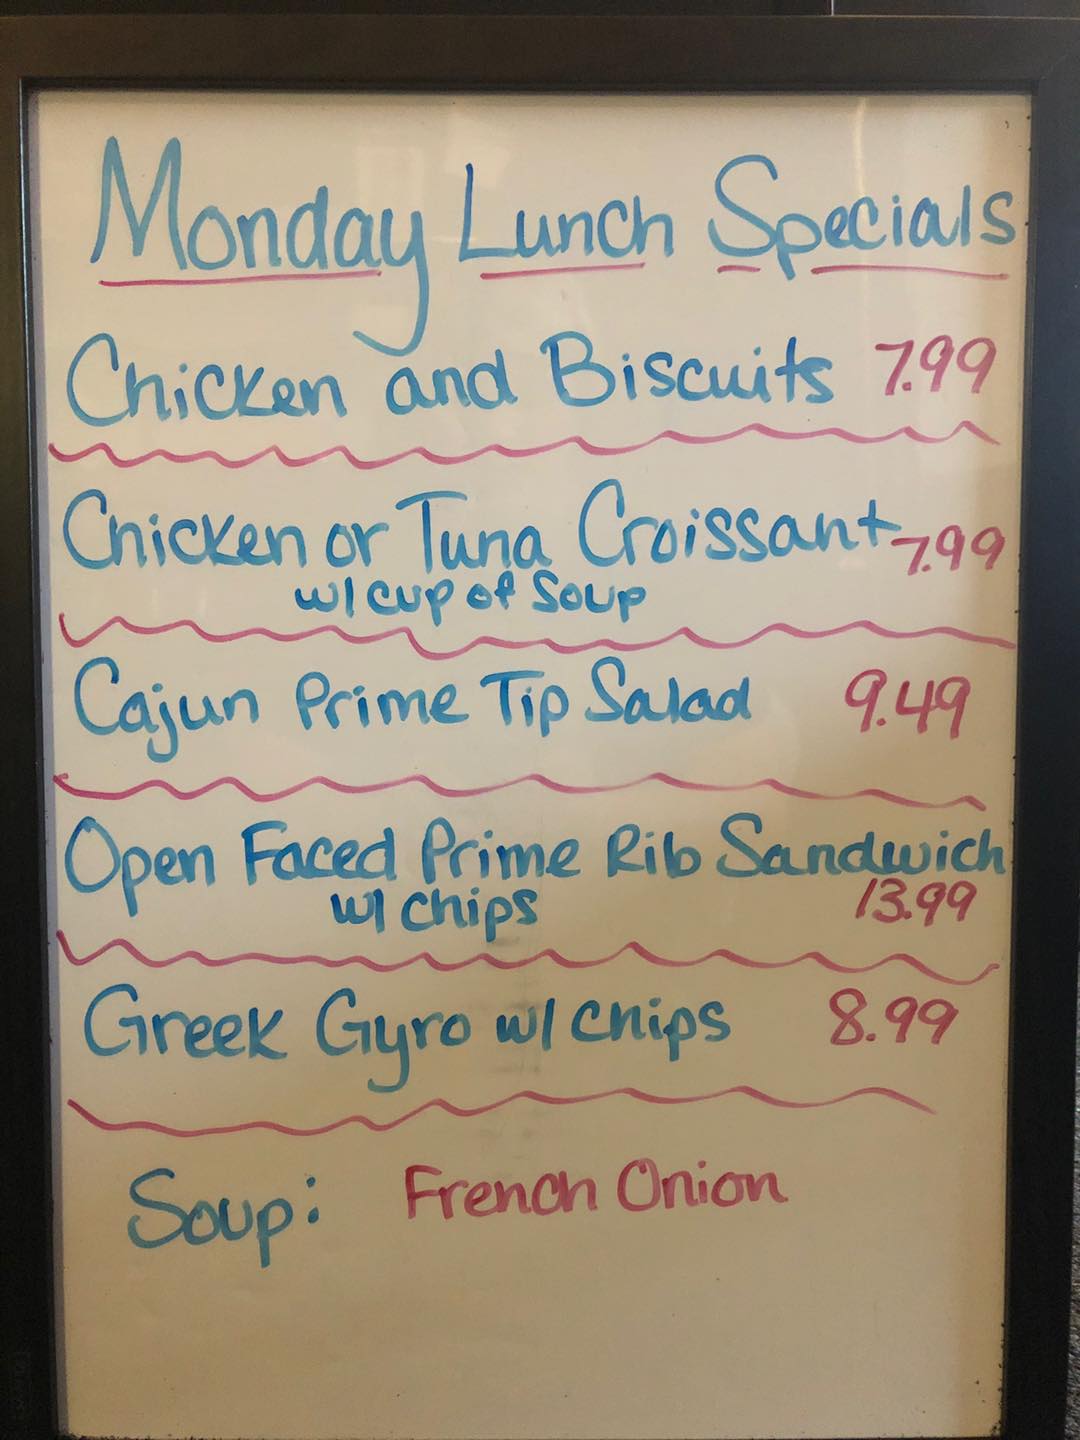 Monday Lunch Specials
Chicken and Biscuits 7.99
Chicken or Tuna Croissant 7.99
w/ cup of Soup
Cajun Prime Tip Salad 9.49
Open Faced Prime Rib Sandwich
w/ chips 13.99
Greek Gyro w/ chips 8.99
Soup: French Onion